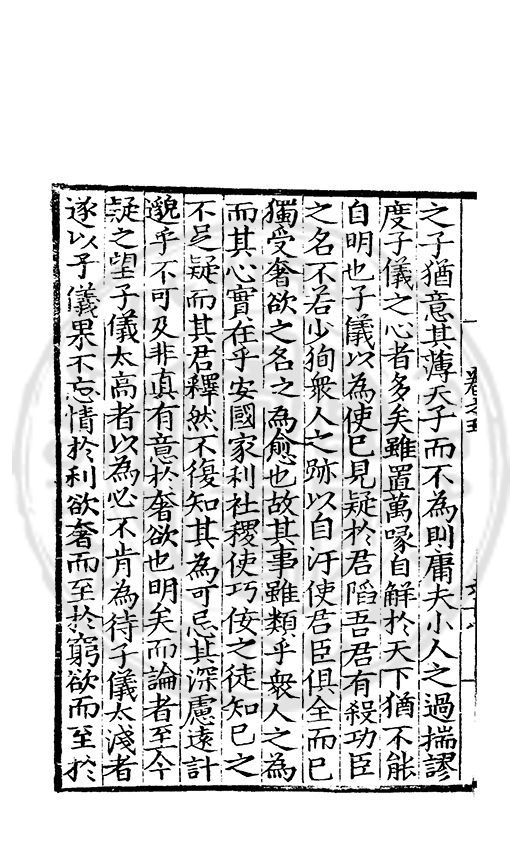 之子猶意其薄天子而不為則庸夫小人之過揣謬
度子儀之心者多矣雖置萬喙自解於天下猶不能
自明也子儀以為使已見疑於君陷吾君有殺功臣
之名不若少狥衆人之跡以自汙使君臣俱全而已
獨受奢欲之名之為愈也故其事雖類乎衆人之為
而其心實在乎安國家利社稷使巧佞之徒知已之
不足疑而其君釋然不復知其為可忌其深慮遠計
邈乎不可及非真有意於奢欲也明矣而論者至今
疑之望子儀太高者以為必不肯為待子儀太淺者
遂以子儀果不忘情於利欲奢而至於窮欲而至於
卷之五